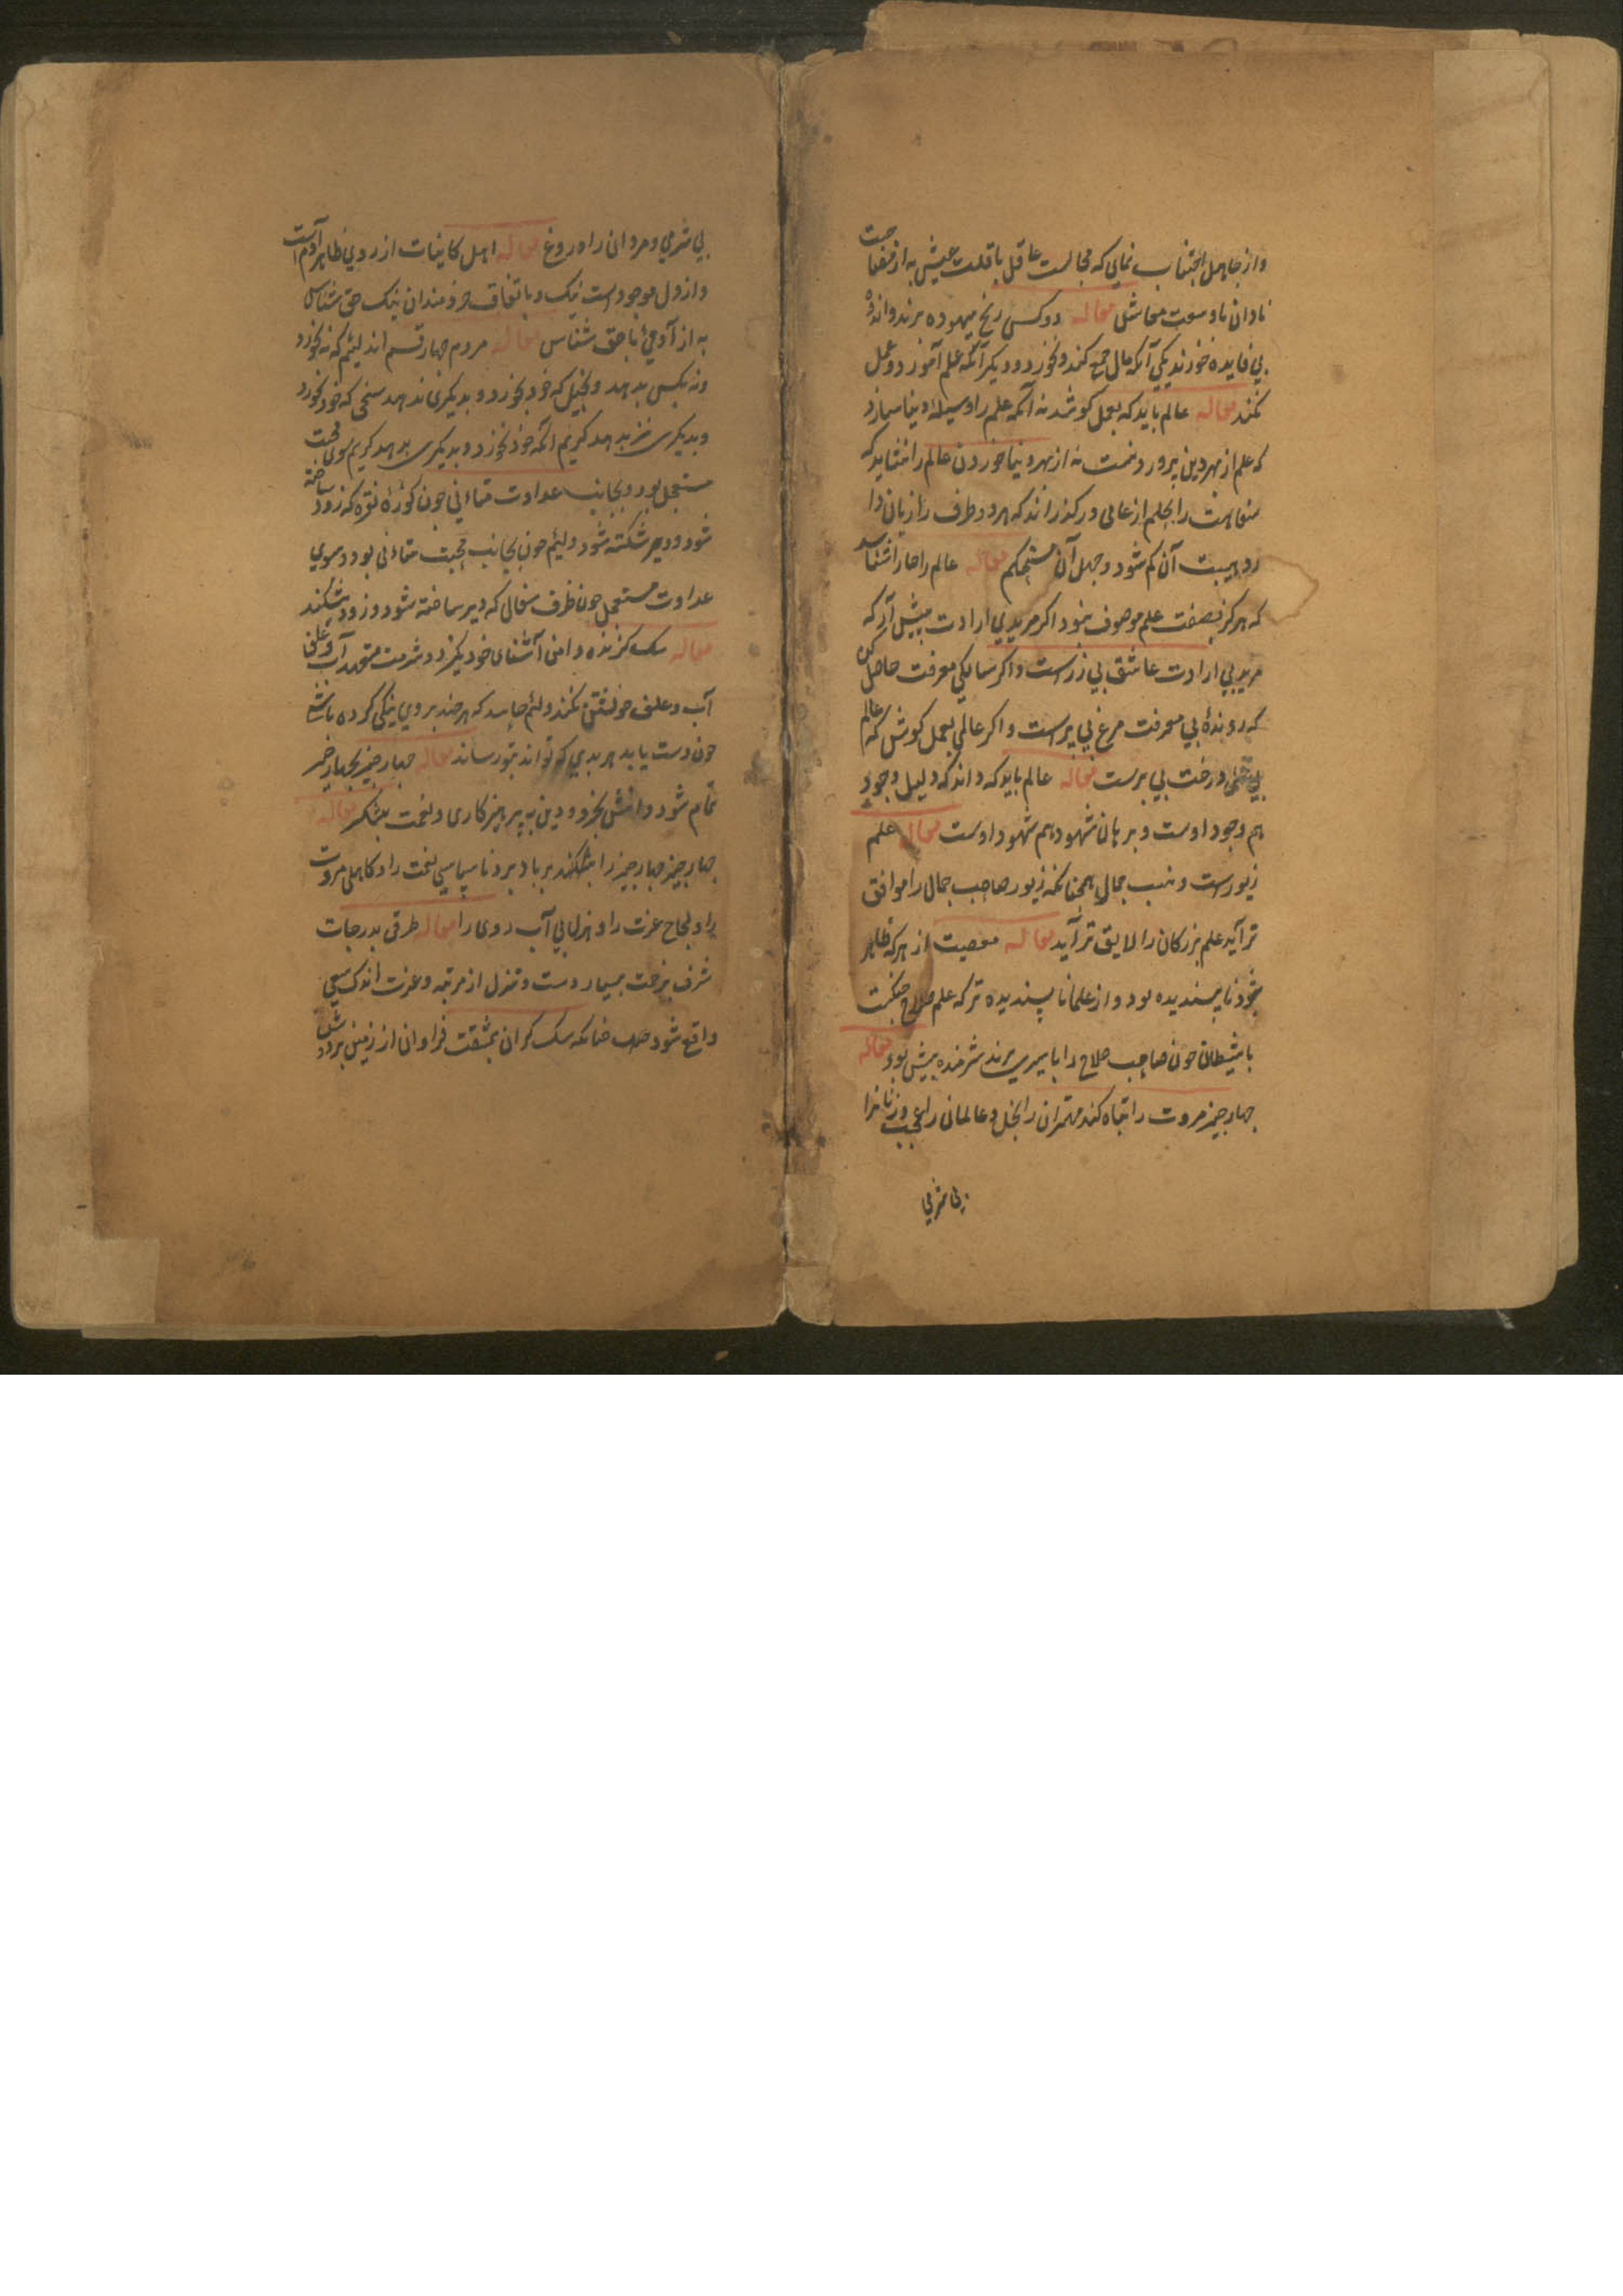 و از جاهل اجتناب نمای که مجالست عاقل با قلت عیش به از مصاحبت
نادان با وسعت معاش مقاله دو کس رنج بیهوده برند و اندوه
بی فایده خورند یکی آنکه مال جمع کند و نخورد و دیگر آنکه علم آموزد و عمل
نکند مقاله عالم باید که بعمل کوشد نه آنکه علم را وسیلهٔ دنیا سازد
که علم از بهر دین پرور دنست نه از بهر دنیا خوردن عالم را نشاید که
سفاهت را بحلم از عامی درگذراند که هر دو طرف را زیان دارد
هیبت آن کم شود و جهل آن مستحکم مقاله عالم را
که هرگز بصفت علم موصوف نبود اگر مریدی ارادت پیش آر که
مرید بی ارادت عاشق بی زرست و اگر سالکی معرفت حاصل کن
که روندهٔ بی معرفت مرغ بی پرست و اگر عالمی بعمل کوش که عالم
بی عمل درخت بی برست مقاله عالم باید که داند که دلیل وجود
هم وجود اوست و برهان شهود هم شهود اوست مقاله علم
زیورست و نسب جمال همچنانکه زیور صاحب جمال را موافق
تر آید علم بزرگان را لایق تر آید مقاله معصیت از هر که ظاهر
شود ناپسندیده بود و از علما ناپسندیده تر که علم سلاح جنگست
با شیطان چون صاحب سلاح را باسیری برند شرمنده بیش بود مقاله
چهار چیز مروت را تباه کند مهتران را بخل و عالمان را عجب و زنانرا
بی شرمی
بی شرمی و مردان را دروغ مقاله اهل کاینات از روی ظاهر آدم است
و اذل موجودات سگ و باتفاق خردمندان سگ حق شناس
به از آدمی ناحق شناس مقاله مردم چهار قسم اند لئیم که نه خورد
و نه بکس بدهد و بخیل که خود بخورد و بدیگری ندهد سخی که خود بخورد
و بدیگری نیز بدهد کریم آنکه خود نخورد و بدیگری بدهد کریم سوی محبت
مستعجل بود و بجانب عداوت متانی چون کوزهٔ نقره که زود ساخته
شود و دیر شکسته شود و لئیم چون بجانب محبت متانی بود و سوی
عداوت مستعجل چون ظرف سفال که دیر ساخته شود و زود بشکند
مقاله سگ گزنده دامن آشنای خود نگیرد و متعهد آب و علف
آب و علف خویشتن نکند و لئیم حاسد که هر چند بروی نیکی کرده باشی
چون دست یابد هر بدی که تواند بتو رساند مقاله چهار چیز بچهار چیز
تمام شود دانش بخرد و دین به پرهیزکاری و نعمت بشکر مقاله
چهار چیز چهار چیز را بشکند و برباد برد ناسپاسی نعمت را و کاهلی مروت
را و لجاج عزت را و هزل آب روی را مقاله ترقی بدرجات
شرف بزحمت بسیار دست و تنزل از مرتبه و عزت باندک سعی
واقع شود چنانکه سنگ گران بمشقت فراوان از زمین بردوش